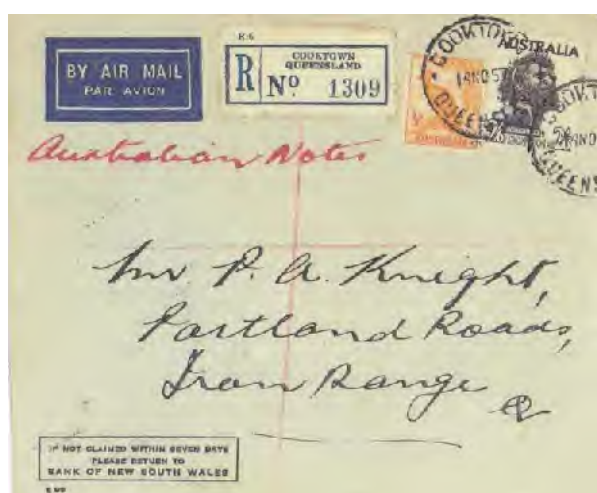 R6
BY AIR MAIL
PAR AVION
R
COOKTOWN
QUEENSLAND
Nº 1309
AUSTRALIA
COOKTOWN
14NO57
QUEENS
Australian Notes
Mr P. A. Knight,
Portland Roads,
Iron Range
Q
IF NOT CLAIMED WITHIN SEVEN DAYS
PLEASE RETURN TO
BANK OF NEW SOUTH WALES